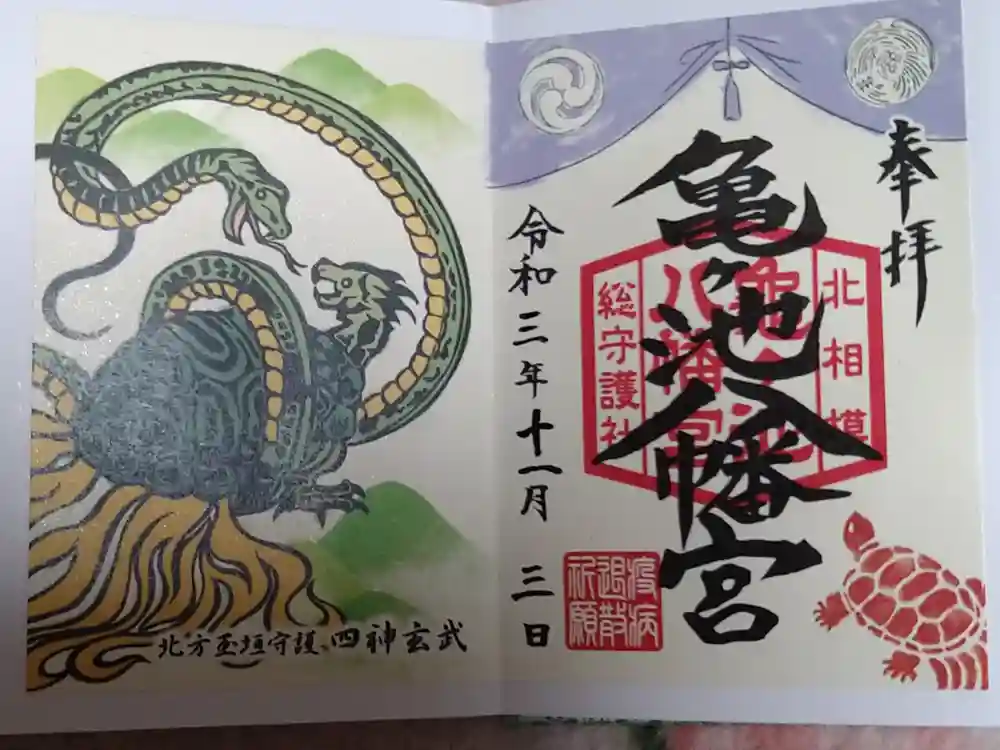 奉拝
北相模
亀ヶ池
八幡宮
総守護社
亀ヶ池八幡宮
疫病
退散
祈願
令和三年十一月三日
北方玉垣守護、四神玄武